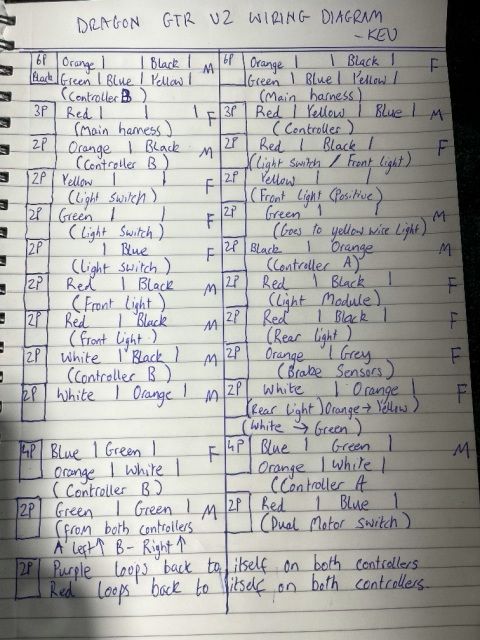 DRAGON GTR V2 WIRING DIAGRAM
- KEV
6P Orange | | Black | M 6P Orange | | Black | F
Black Green | Blue | Yellow | Green | Blue | Yellow |
(Controller B) (Main harness)
3P Red | | | F 3P Red | Yellow | Blue | M
(Main harness) (Controller)
2P Orange | Black M 2P Red | Black | F
(Controller B) (Light Switch / Front light)
2P Yellow | | F 2P Yellow | |
(Light Switch) (Front Light (Positive)
2P Green | | F 2P Green | | M
(Light Switch) (Goes to yellow wire light)
2P | Blue F 2P Black | Orange M
(Light switch) (Controller A)
2P Red | Black M 2P Red | Black | F
(Front light) (Light Module)
2P Red | Black M 2P Red | Black | F
(front light) (Rear light)
2P White | Black | M 2P Orange | Grey F
(Controller B) (Brake Sensors)
2P White | Orange | M 2P White | Orange | F
(Rear Light) Orange → Yellow)
(White → Green)
4P Blue | Green | F 4P Blue | Green | M
Orange | White | Orange | White |
(Controller B) (Controller A
2P Green | Green | M 2P Red | Blue |
(from both controllers (Dual Motor switch)
A Left ↑ B - Right ↑
2P Purple loops back to itself on both controllers
Red loops back to itself on both controllers.